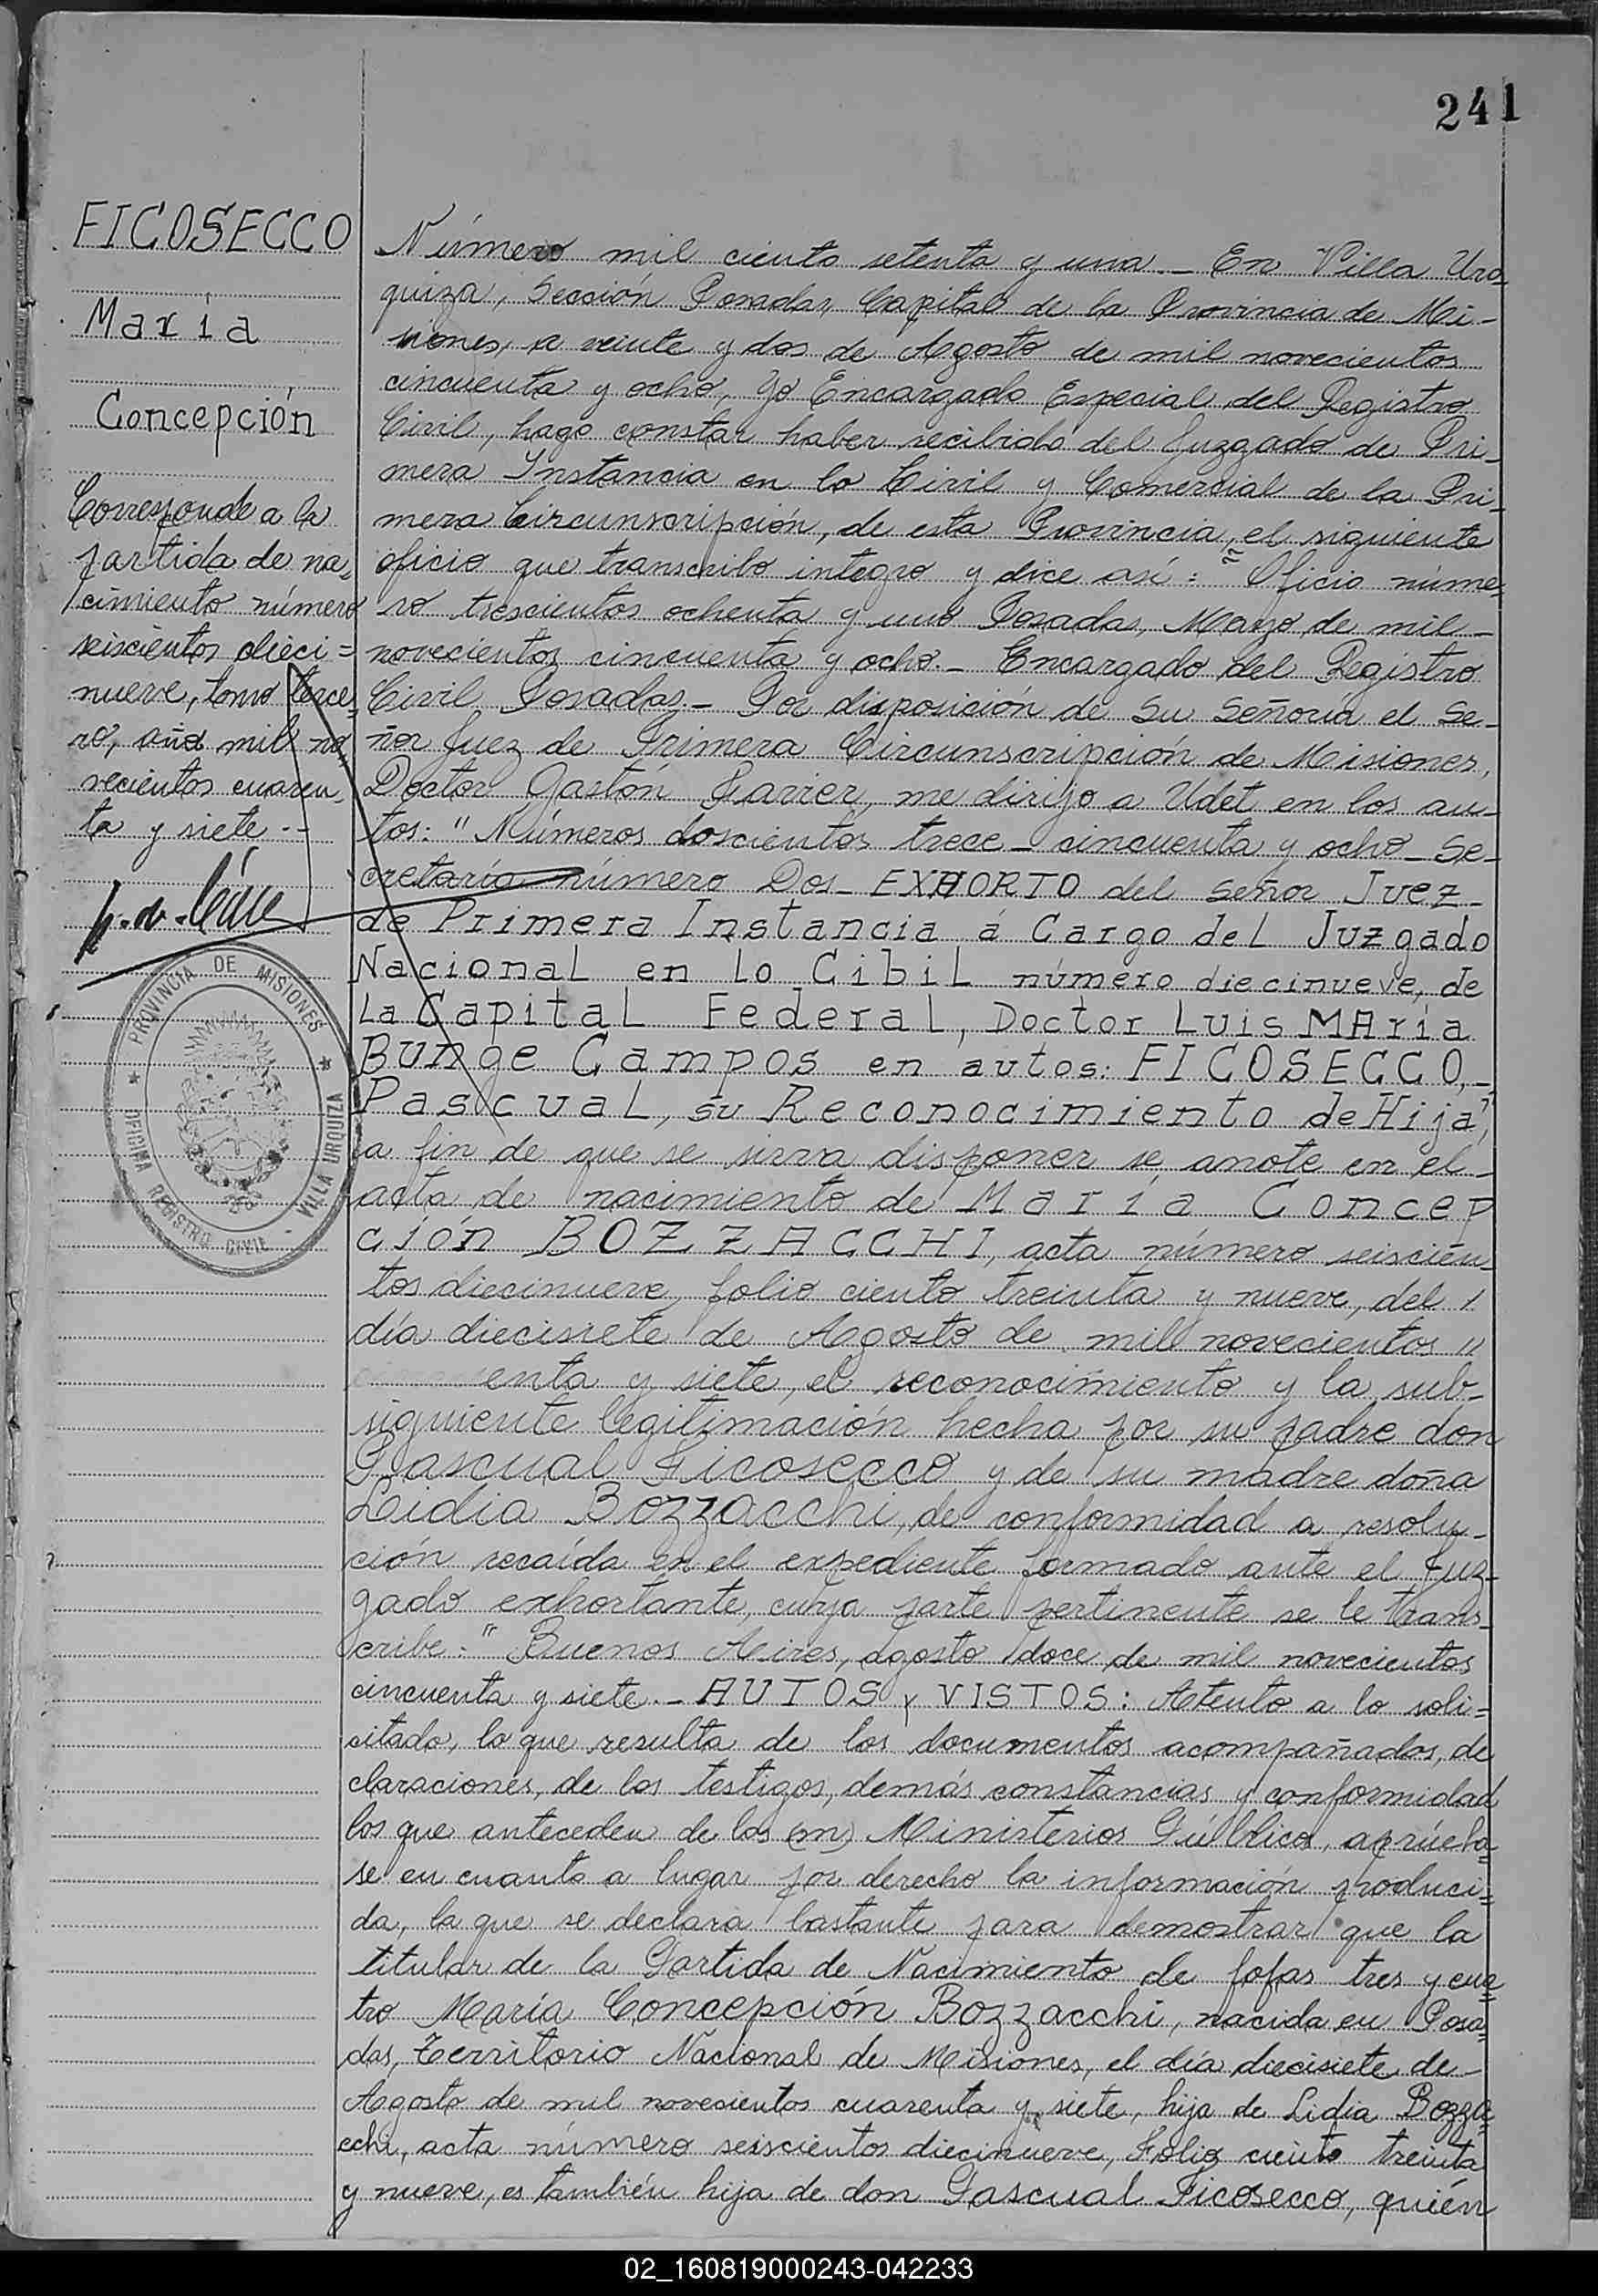 241
FICOSECCO
María
Concepción
Corresponde a la
partida de na=
cimiento número
seiscientos dieci=
nueve, tomo terce=
ro, año mil no
vecientos cuaren
ta y siete.-
PROVINCIA DE MISIONES
OFICINA REGISTRO CIVIL - VILLA URQUIZA
Número mil ciento setenta y una.- En Villa Urq
quiza, Sección Posadas, Capital de la Provincia de Mi-
siones, a veinte y dos de Agosto de mil novecientos
cincuenta y ocho, yo Encargado Especial del Registro
Civil, hago constar haber recibido del Juzgado de Pri-
mera Instancia en lo Civil y Comercial de la Pri-
mera Circunscripción, de esta Provincia, el siguiente
oficio que transcribo integro y dice así: " Oficio núme-
ro trescientos ochenta y uno Posadas, Mayo de mil-
novecientos cincuenta y ocho.- Encargado del Registro
Civil Posadas.- Por disposición de Su Señoría el Se-
ñor Juez de Primera Circunscripción de Misiones,
Doctor Gastón me dirijo a Udet en los au-
tos: " Números doscientos trece - cincuenta y ocho - Se-
cretaría número Dos - EXHORTO del Señor Juez
de Primera Instancia á Cargo del Juzgado
Nacional en lo Cibil número diecinueve, de
La Capital Federal, Doctor Luis MAría
Bunge Campos en autos: FICOSECCO,-
Pascual, su Reconocimiento de Hija",
a fin de que se sirva disponer se anote en el-
acta de nacimiento de María Concep
ción BOZZACCHI, acta número seiscien-
tos diecinueve, folio ciento treinta y nueve, del /
día diecisiete de Agosto de mil novecientos "
enta y siete, el reconocimiento y la sub-
siguiente legitimación hecha por su padre don
Pascual Ficosecco y de su madre doña
Leidia Bozzacchi, de conformidad a resolu-
ción recaída en el expediente formado ante el Juz-
gado exhortante, cuya parte pertinente se le trans-
cribe: " Buenos Aires, agosto doce de mil novecientos
cincuenta y siete.- AUTOS y VISTOS: Atento a lo soli=
sitado, lo que resulta de los documentos acompañados, de
claraciones, de los testigos, demás constancias y conformidad
los que anteceden de los (m) Ministerios Públicos, aprúeba=
se en cuanto a lugar por derecho la información produci=
da, la que se declara bastante para demostrar que la
titular de la Partida de Nacimiento de fojas tres y cua=
tro María Concepción Bozzacchi, nacida en Posa=
das, Territorio Nacional de Misiones, el día diecisiete de-
Agosto de mil novesientos cuarenta y siete, hija de Lidia Bozza=
cchi, acta número seiscientos diecinueve, Folio ciento treinta
y nueve, es también hija de don Pascual Ficosecco, quién
02_160819000243-042233